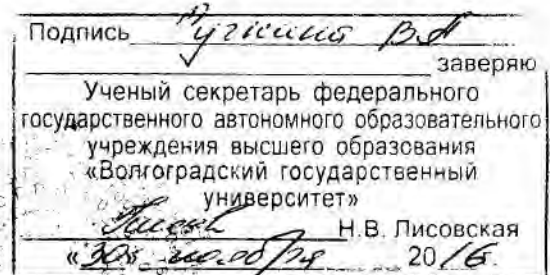 Подпись В.А
заверяю
Ученый секретарь федерального
государственного автономного образовательного
учреждения высшего образования
«Волгоградский государственный
университет»
Н.В. Лисовская
«30» ноября 2016.